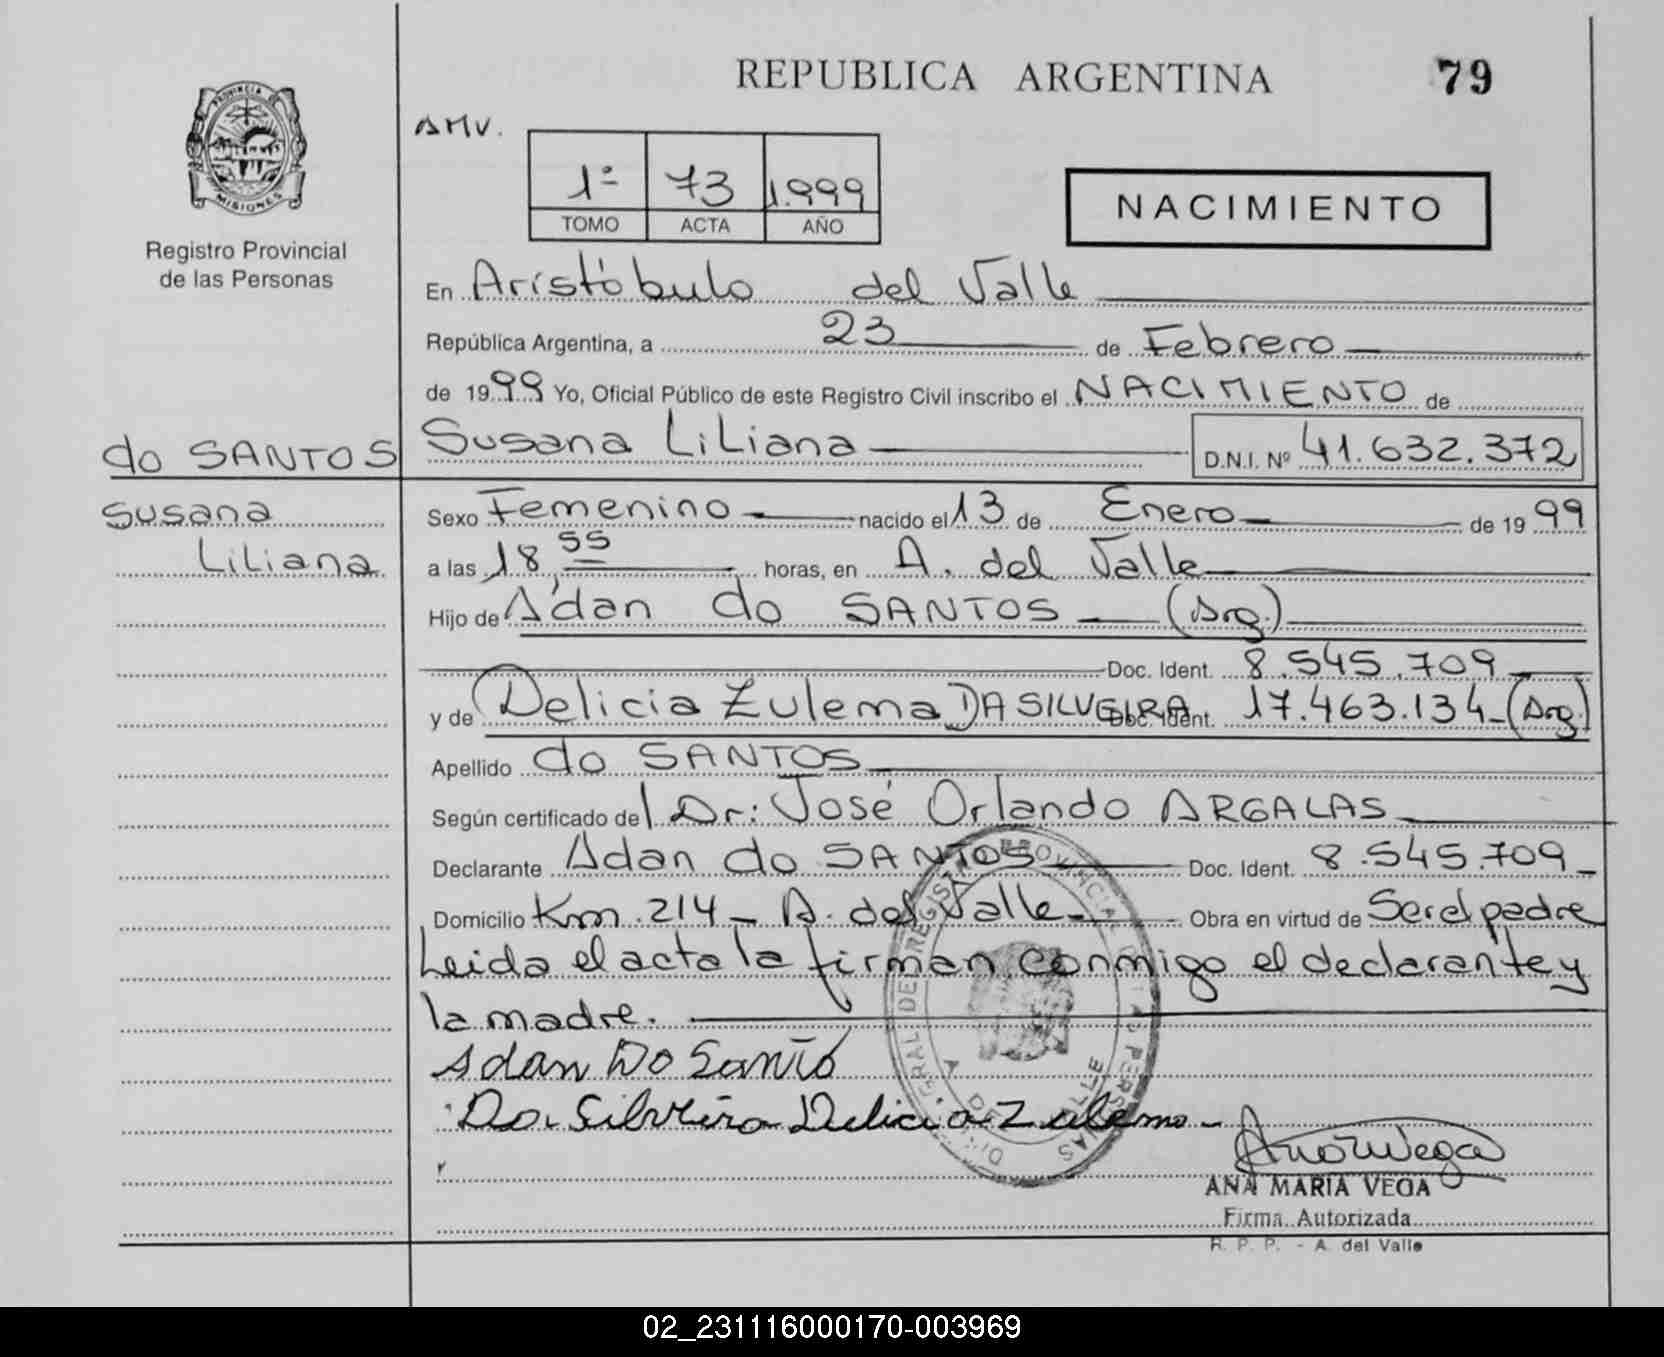 REPUBLICA ARGENTINA 79
AMV.
PROVINCIA DE
MISIONES
1º 73 1.999
TOMO ACTA AÑO
NACIMIENTO
Registro Provincial
de las Personas
En Arístóbulo del Valle
República Argentina, a 23 de Febrero
de 1999 Yo, Oficial Público de este Registro Civil inscribo el NACIMIENTO de
do SANTOS Susana Liliana D.N.I. Nº 41.632.372
Susana Sexo Femenino nacido el 13 de Enero de 1999
Liliana a las 18,55 horas, en A. del Valle
Hijo de Adan do SANTOS (Arg.)
Doc. Ident. 8.545.709
y de Delicia Zulema DA SILVEIRA Doc. Ident. 17.463.134 (Arg.)
Apellido do SANTOS
Según certificado del Dr: José Orlando ARGALAS
Declarante Adan do SANTOS Doc. Ident. 8.545.709
Domicilio Km. 214 - A. del Valle Obra en virtud de Ser el padre
Leida el acta la firman conmigo el declarante y
la madre.
Adan Do Santo
Da Silveira Delicia Zulema
ANA MARIA VEGA
Firma Autorizada
R. P. P. - A. del Valle
02_231116000170-003969